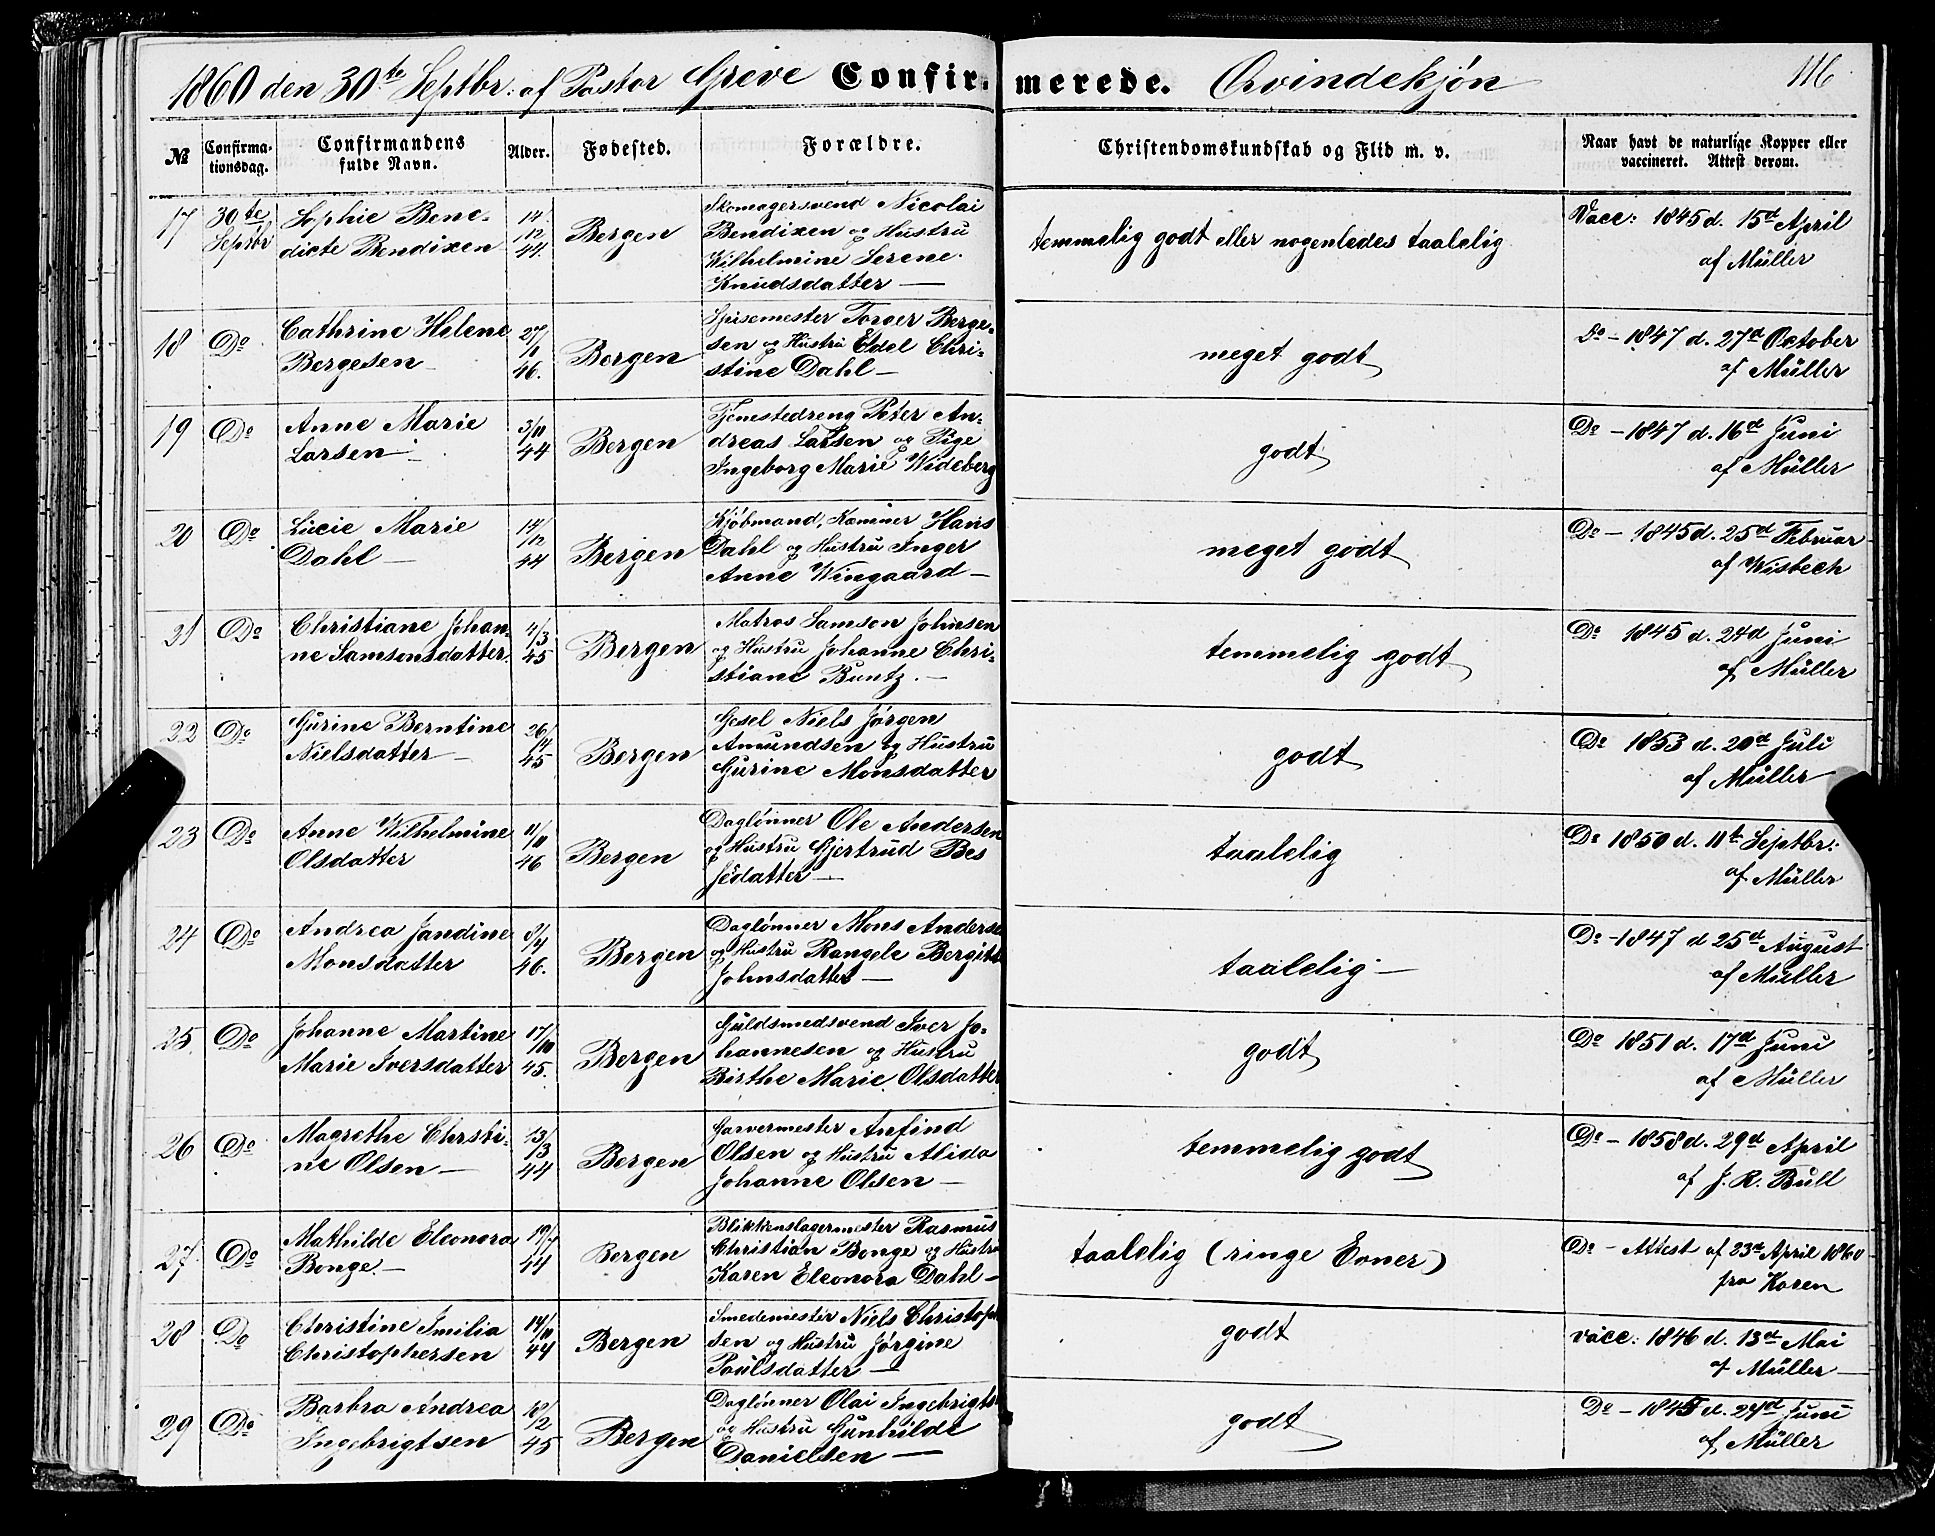 1860 den 30te Septbr: af Pastor Greve Confirmerede. Qvindekjøn 116
№ Confirmationsdag. Confirmandens fulde Navn. Alder. Fødested. Forældre. Christendomskundskab og Flid m. v. Naar havt de naturlige Kopper eller vaccineret. Attest derom.
17 30te Septbr Sophie Benedicte Bendixen 14/12 44. Bergen
Skomagersvend Nicolai
Bendixen og Hustru
Wilhelmine Serene
Knudsdatter —
temmelig godt eller nogenledes taalelig
Vacc: 1845 d. 15d April
af Müller
18 Do Cathrine Helene
Bergesen — 27/ 46. Bergen
Spisemester Torger Berge-
sen og Hustru Edel Chri-
stine Dahl —
meget godt
Do — 1847 d. 27d October
af Müller
19 Do Anne Marie
Larsen — 3/11 44 Bergen
Tjenestedreng Peter An-
dreas Larsen og Pige
Ingeborg Marie Wideberg
godt
Do — 1847 d. 16d Juni
af Müller
20 Do Lucie Marie
Dahl — 14/12 44 Bergen
Kjøbmand, Kæmner Hans
Dahl og Hustru Inger
Anne Wingaard —
meget godt
Do — 1845 d. 25d Februar
af Wisbech
21 Do Christiane Johan-
ne Samsonsdatter. 4/3 45 Bergen
Matros Samson Johnsen
og Hustru Johanne Chri-
stiane Buntz. —
temmelig godt
Do 1845 d. 24d Juni
af Müller
22 Do Gurine Berntine
Nielsdatter — 26/ 45 Bergen
Gesel Niels Jørgen
Amundsen og Hustru
Gurine Monsdatter
godt
Do 1853 d. 20d Juli
af Müller
23 Do Anne Wilhelmine
Olsdatter 11/11 46 Bergen
Daglønner Ole Andersen
og Hustru Gjertrud Bes
sedatter —
taalelig
Do 1850 d. 11t Septbr:
af Müller
24 Do Andrea Jandine
Monsdatter 8/4 46. Bergen
Daglønner Mons Anderse
og Hustru Rangele Bergite
Johnsdatter —
taalelig —
Do — 1847 d 25d August
af Müller
25. Do Johanne Martine
Marie Iversdatter 17/10 45. Bergen
Guldsmedsvend Iver Jo-
hannesen og Hustru
Birthe Marie Olsdatter
godt
Do 1851 d. 17d Juni
af Müller
26 Do Magrethe Christi-
ne Olsen — 13/3 44 Bergen
Garvermester Anfind
Olsen og Hustru Alida
Johanne Olsen —
temmelig godt
Do — 1858 d. 29d April
af J. R. Bull
27 Do Mathilde Eleonora
Bonge. — 19/7 44 Bergen
Blikkenslagermester Rasmus
Christian Bonge og Hustru
Karen Eleonora Dahl —
taalelig (ringe Evner)
Do — Attest af 23d April 1860
fra Koren
28 Do Christine Imilia
Christophersen 14/11 44 Bergen
Smedemester Niels Christoph
sen og Hustru Jørgine
Paulsdatter —
godt
vacc: 1846 d. 13d Mai
af Müller
29 Do Barbra Andrea
Ingebrigtsen 18/2 45 Bergen
Daglønner Olai Ingebrigts
og Hustru Gunhilde
Danielsen —
godt
Do — 1845 d. 24d Juni
af Müller